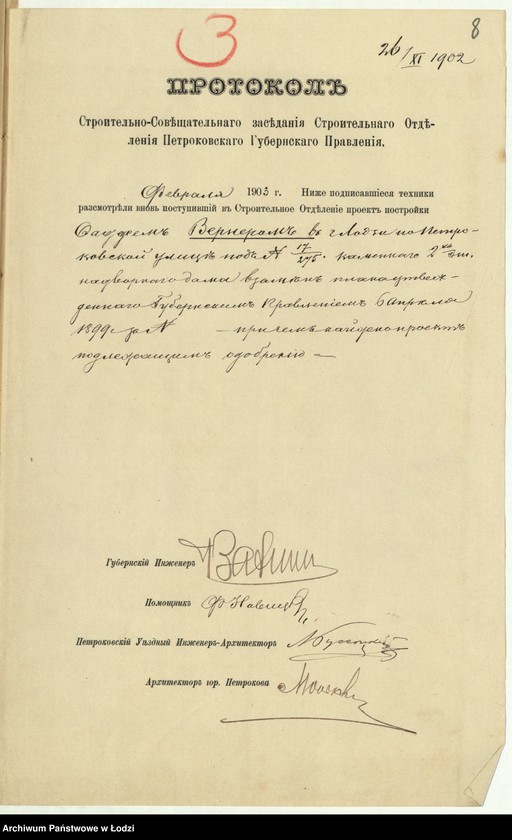 3
8
26/XI 1902
ПРОТОКОЛЪ
Строительно-Совѣщательнаго засѣданія Строительнаго Отдѣ-
ленія Петроковскаго Губернскаго Правленія.
Февраля 1903 г. Ниже подписавшіеся техники
разсмотрѣли вновь поступившій въ Строительное Отдѣленіе проектъ постройки
Вернеромъ въ г Лодзи по Петро-
ковской улицѣ подъ № 17/275. каменнаго 2хъ эт.
надворнаго дома взамѣнъ плана утверж-
деннаго Губернскимъ Правленіемъ 6 апрѣля
1899 г за № — причемъ найдено проектъ
подлежащимъ одобренію —
Губернскій Инженеръ
Помощникъ
Петроковскій Уѣздный Инженеръ-Архитекторъ
Архитекторъ гор. Петрокова
Archiwum Państwowe w Łodzi